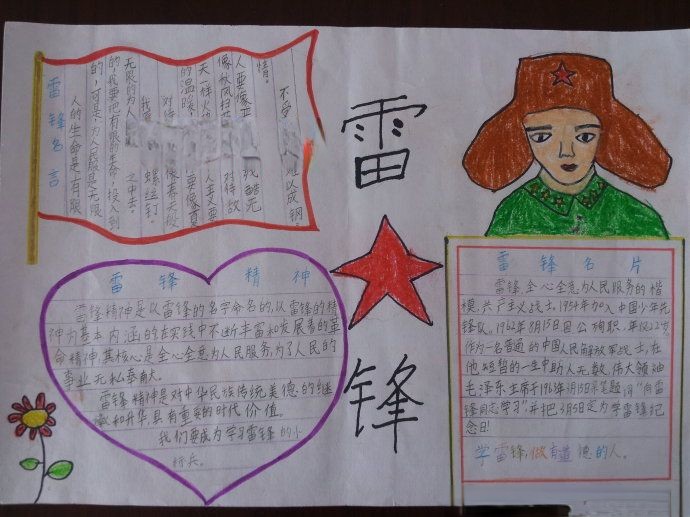 雷锋名言
人的生命是有限
的,可是,为人民服务是无限
的,我要把有限的生命,投入到
无限的为人
之中去。
螺丝钉。
不受
难以成钢。
雷
锋
雷锋精神
雷锋精神是以雷锋的名字命名的,以雷锋的精
神为基本内涵的在实践中不断丰富和发展着的革
命精神,其核心是全心全意为人民服务,为了人民的
事业无私奉献。
雷锋精神是对中华民族传统美德的继
承和升华,具有重要的时代价值。
我们要成为学习雷锋的小
标兵。
雷锋名片
雷锋,全心全意为人民服务的楷
模,共产主义战士,1954年加入中国少年先
锋队,1962年8月15日因公殉职,年仅22岁。
作为一名普通的中国人民解放军战士,在
他短暂的一生中助人无数,伟大领袖
毛泽东主席于1963年3月5日亲笔题词“向雷
锋同志学习”,并把3月5日定为学雷锋纪
念日!
学雷锋,做有道德的人。